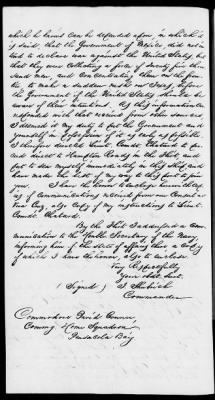 which he knows can be depended upon, in which it
is said, that the Government of Mexico did not in-
tend to declare war against the United States, but
that they were collecting a force of twenty five thou
sand men, and concentrating them on the fron
tier, to make a sudden rush on Texas, before
the Government of the United States should be
aware of their intentions. As this information cor
responded with that received from other sources
I deemed it my duty to put the Government and
yourself in possession of it as early as possible
I therefore directed Lieut. Comdt. Chatard to pro
ceed direct to Hampton Roads in the Flirt and
put to Sea myself immediately in this Ship and
have made the best of my way to this port to join
you. I have the honor to enclose herewith
of communications received from our Consul at
Vera Cruz, also Copy of my instructions to Lieut.
Comdt. Chatard.
By the Flirt I addressed a com-
munication to the Honble Secretary of the Navy
informing him of the state of affairs there a Copy
of which I have the honor, also to enclose
Very Respectfully
Your Obt. Servt.
(Signed) I Shubrick
Commander
Commodore David Conner
Comdg Home Squadron
Pensacola Bay